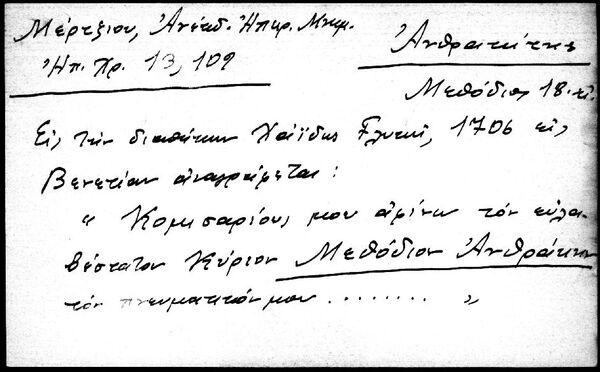 Μέρτζιου, Ἀνέκδ. Ἠπειρ. Μνημ.
Ἠπ. Χρ. 13, 109
Ἀνθρακίτης
Μεθόδιος 18. αἰ.
Εἰς τὴν διαθήκην Χάϊδως Γλυκῆ, 1706 εἰς
Βενετίαν ἀναγράφεται:
" Κομισαρίους μου ἀφίνω τὸν εὐλα-
βέστατον Κύριον Μεθόδιον Ἀνθράκην
τὸν πνευματικόν μου ........ "